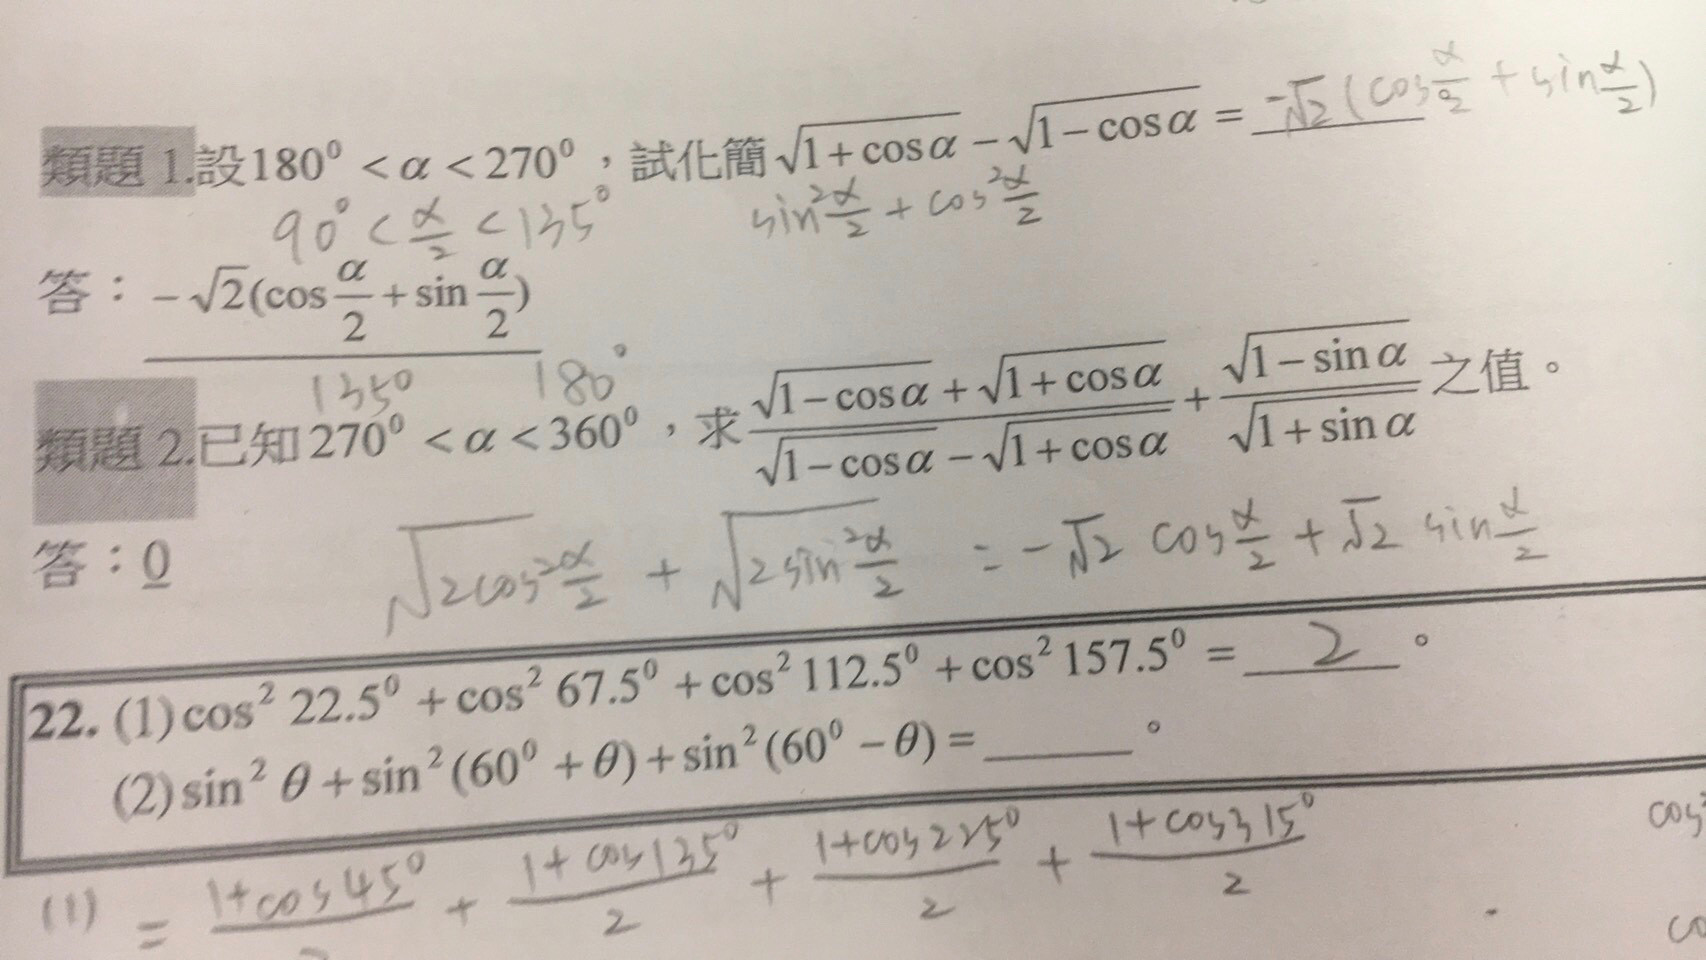 類題 1.設180⁰ < α < 270⁰，試化簡√(1+cosα) − √(1−cosα) = -√2 (cos α/2 + sin α/2)
90° < α/2 < 135°
sin² α/2 + cos² α/2
答：−√2(cos α/2 + sin α/2)
135° 180°
類題 2.已知 270⁰ < α < 360⁰，求 (√(1−cosα) + √(1+cosα))/(√(1−cosα) − √(1+cosα)) + √(1−sinα)/√(1+sinα) 之值。
答：0
√(2cos² α/2) + √(2sin² α/2) = -√2 cos α/2 + √2 sin α/2
22. (1) cos² 22.5⁰ + cos² 67.5⁰ + cos² 112.5⁰ + cos² 157.5⁰ = 2 。
(2) sin² θ + sin² (60⁰ + θ) + sin² (60⁰ − θ) = ______ 。
(1) = (1+cos45°)/2 + (1+cos135°)/2 + (1+cos225°)/2 + (1+cos315°)/2